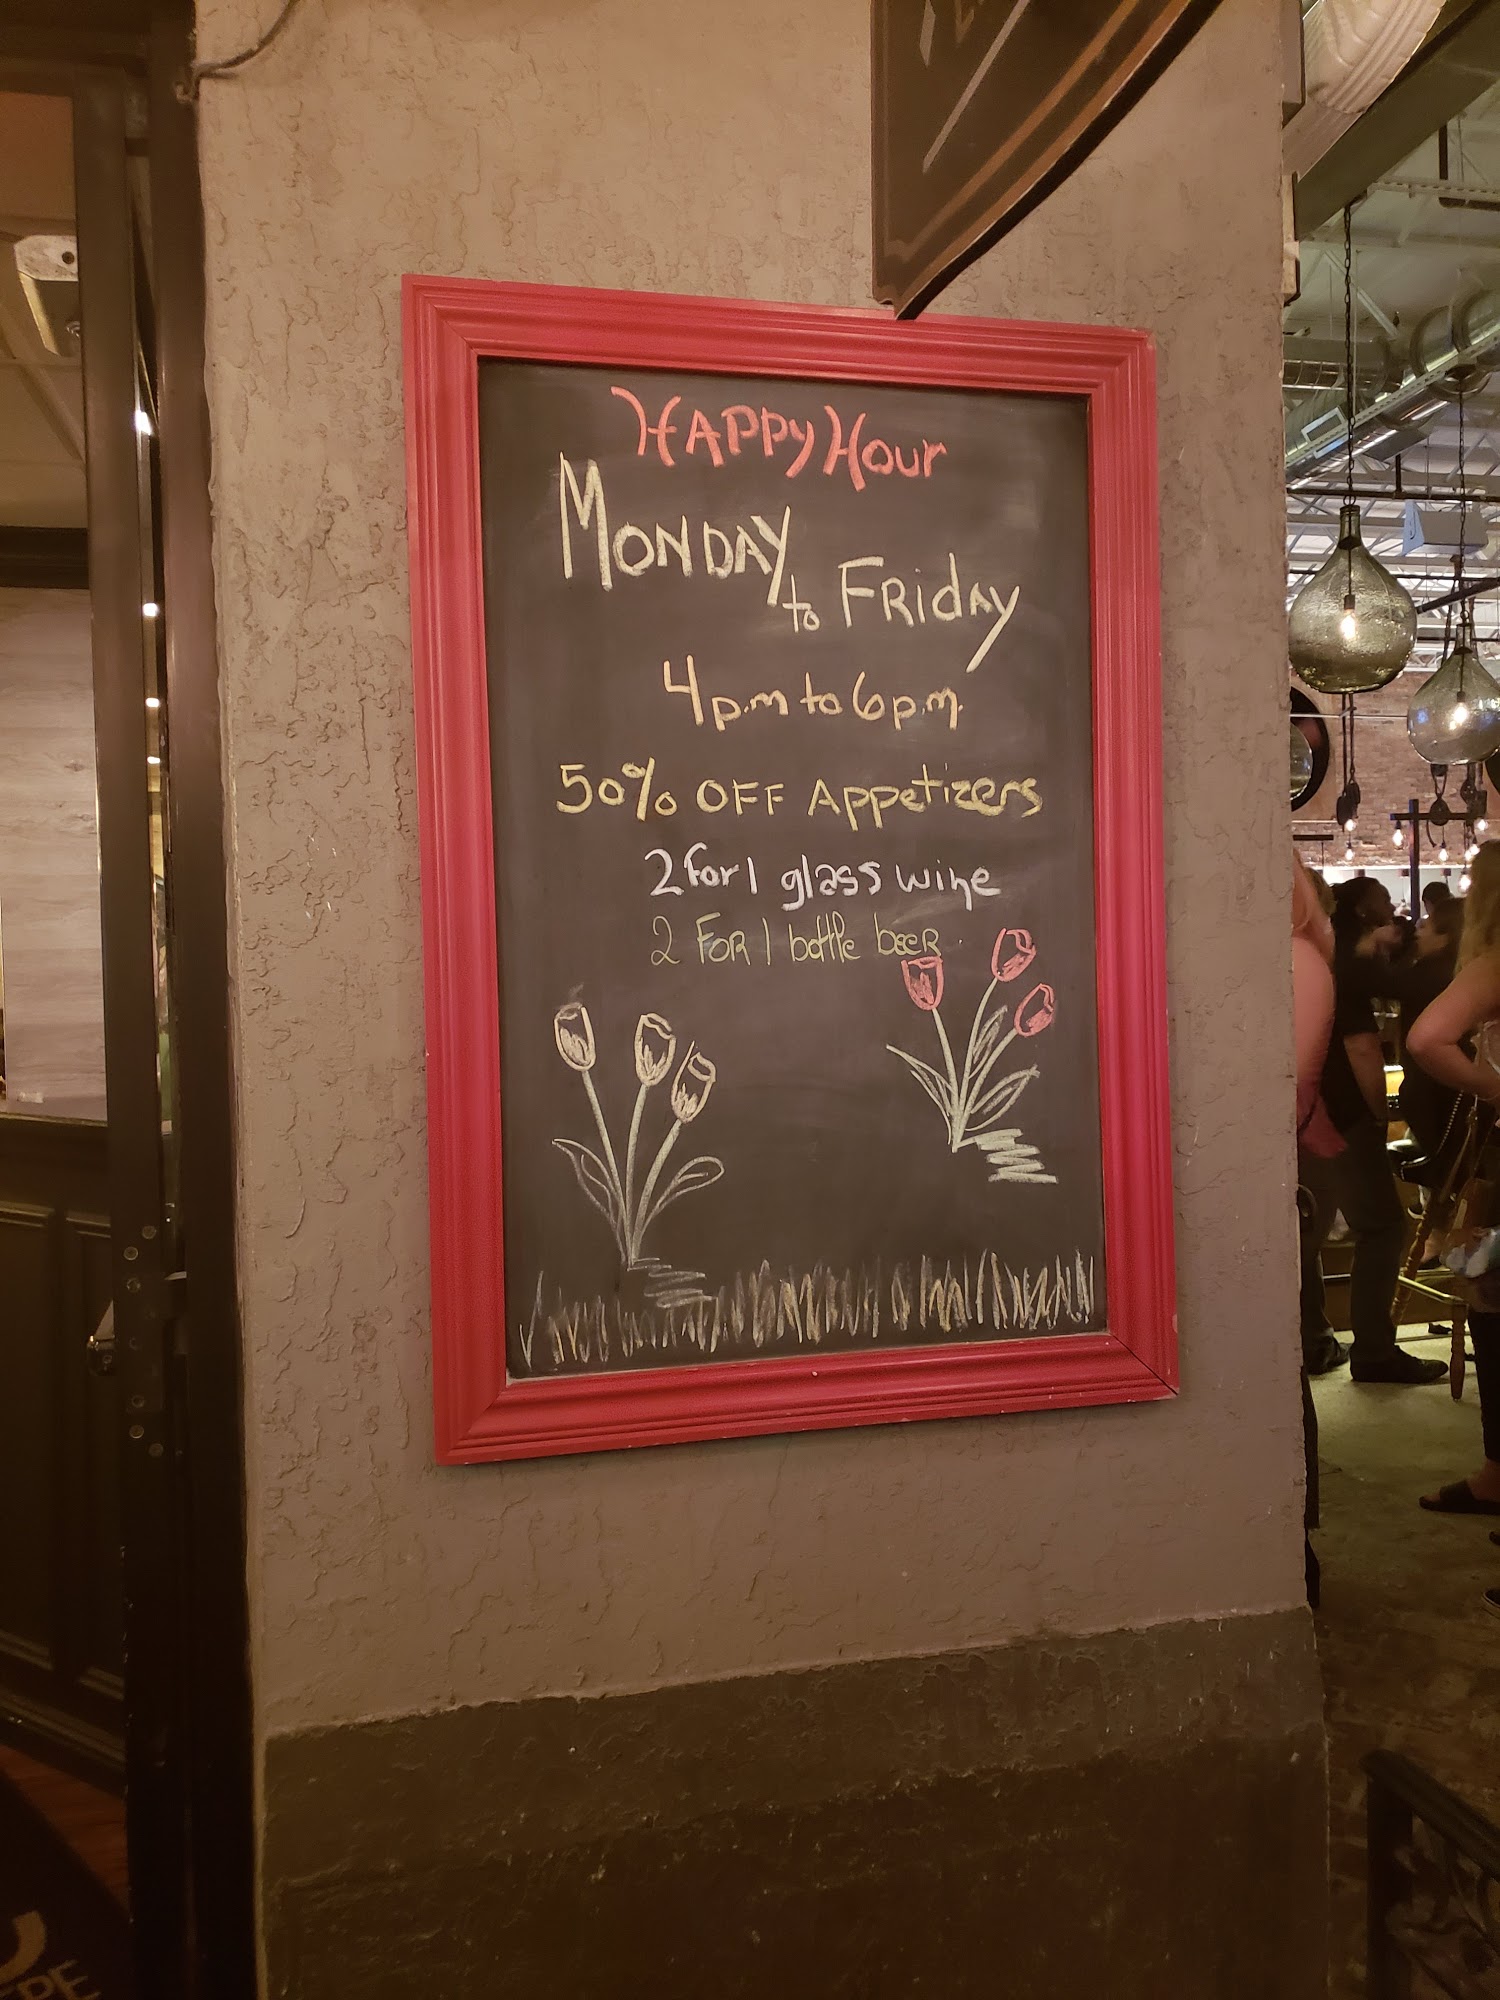 HAppy Hour
MONDAY
to FRiday
4p.m to 6p.m.
50% OFF Appetizers
2 for 1 glass wine
2 FoR 1 bottle beeR